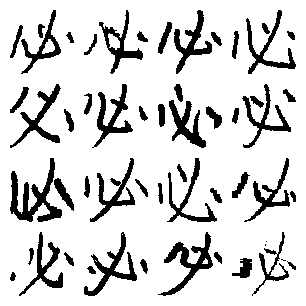 必必必必
必必必必
必必必必
必必必必